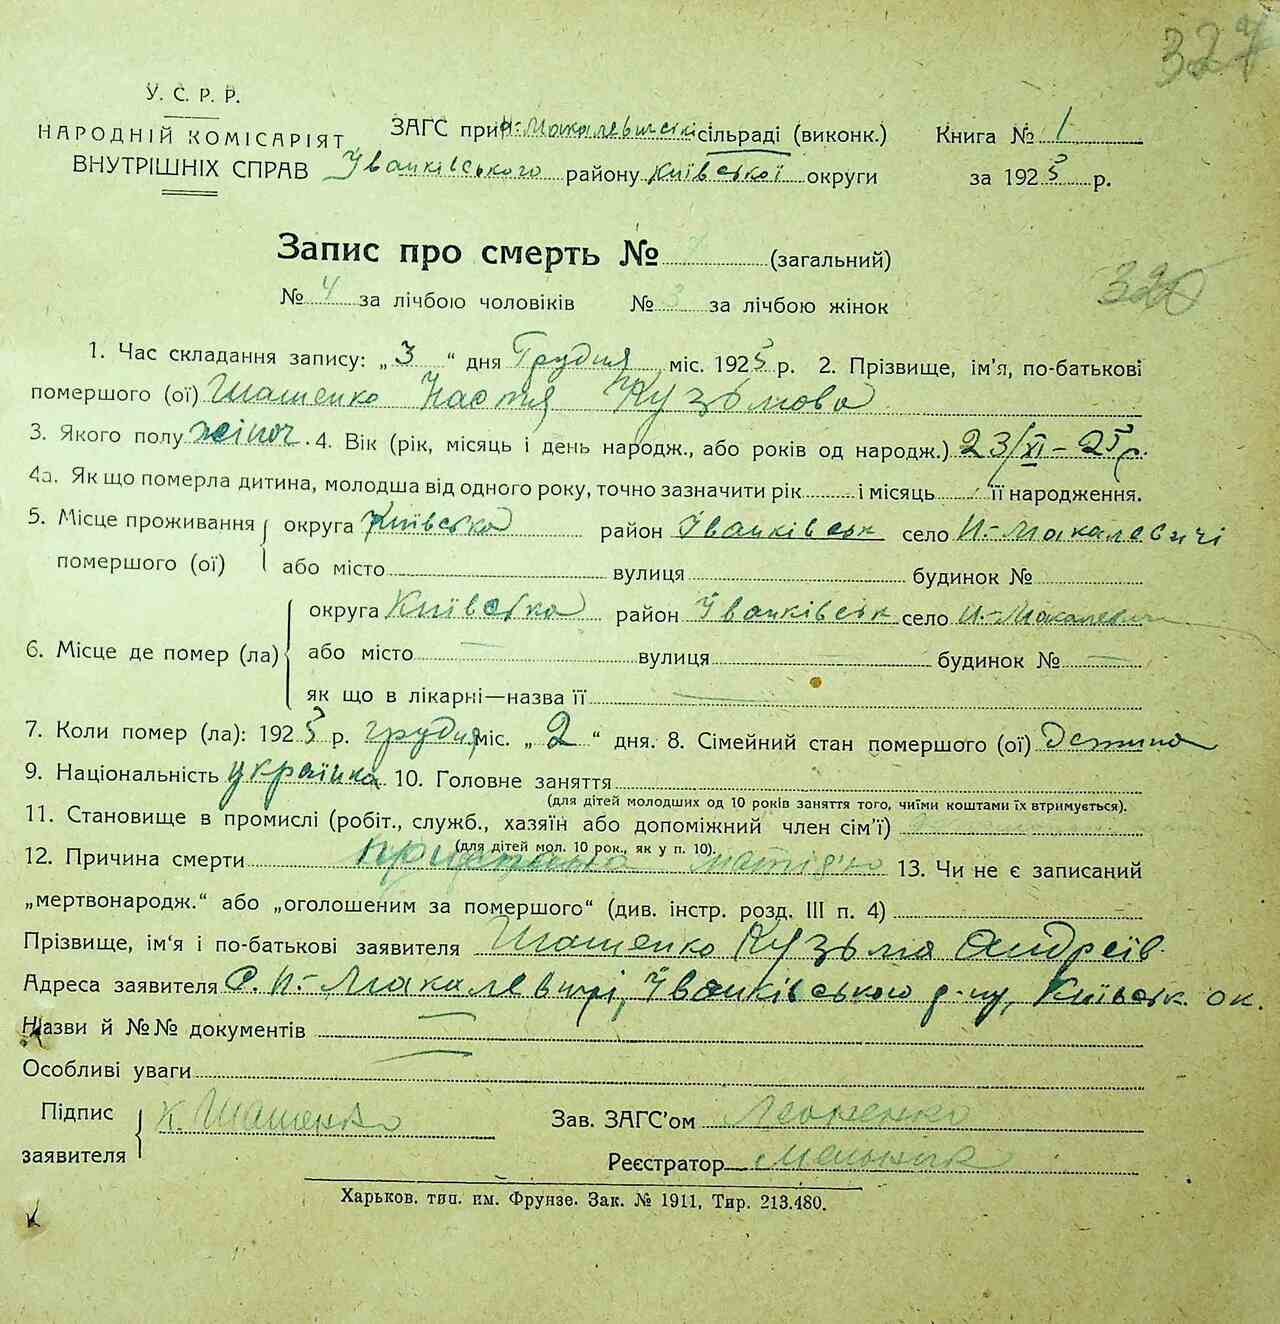 327
У. С. Р. Р.
НАРОДНІЙ КОМІСАРІЯТ
ВНУТРІШНІХ СПРАВ
ЗАГС при Н-Макалевицькій сільраді (виконк.)
Іванківського району Київської округи
Книга № 1
за 1925 р.
Запис про смерть № 7 (загальний)
№ 4 за лічбою чоловіків № 3 за лічбою жінок
320
1. Час складання запису: „3“ дня Грудня міс. 1925 р. 2. Прізвище, ім'я, по-батькові
помершого (ої) Шашенко Настя Кузьмова
3. Якого полу жіноч. 4. Вік (рік, місяць і день народж., або років од народж.) 23/XI – 25 р.
4а. Як що померла дитина, молодша від одного року, точно зазначити рік і місяць її народження.
5. Місце проживання помершого (ої) округа Київська район Іванківськ село Н.-Макалевичі
або місто вулиця будинок №
6. Місце де помер (ла) округа Київська район Іванківськ село Н.-Макалевичі
або місто вулиця будинок №
як що в лікарні—назва її
7. Коли помер (ла): 1925 р. грудня міс. „2“ дня. 8. Сімейний стан помершого (ої) Детина
9. Національність українка 10. Головне заняття
(для дітей молодших од 10 років заняття того, чиїми коштами їх втримується).
11. Становище в промислі (робіт., служб., хазяїн або допоміжний член сім'ї)
(для дітей мол. 10 рок., як у п. 10).
12. Причина смерти приспана матір'ю 13. Чи не є записаний
„мертвонародж.“ або „оголошеним за помершого“ (див. інстр. розд. III п. 4)
Прізвище, ім'я і по-батькові заявителя Шашенко Кузьма Андреїв
Адреса заявителя С. Н-Макалевичі, Іванківського р-ну, Київськ. ок.
Назви й №№ документів
Особливі уваги
Підпис заявителя К. Шашенко
Зав. ЗАГС'ом
Реєстратор Мельник
Харьков. тип. им. Фрунзе. Зак. № 1911, Тир. 213.480.